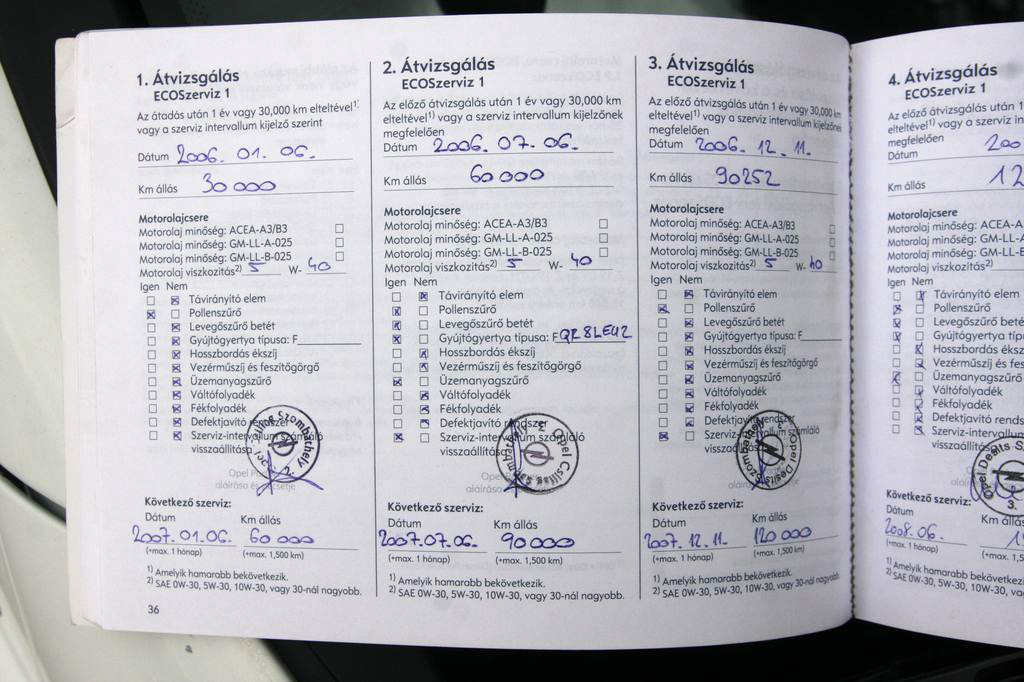 1. Átvizsgálás
ECOSzerviz 1
Az átadás után 1 év vagy 30,000 km elteltével¹⁾
vagy a szerviz intervallum kijelző szerint
Dátum 2006. 01. 06.
Km állás 30 000
Motorolajcsere
Motorolaj minőség: ACEA-A3/B3
Motorolaj minőség: GM-LL-A-025
Motorolaj minőség: GM-LL-B-025
Motorolaj viszkozitás²⁾ 5 W- 40
Igen Nem
Távirányító elem
Pollenszűrő
Levegőszűrő betét
Gyújtógyertya típusa: F
Hosszbordás ékszíj
Vezérműszíj és feszítőgörgő
Üzemanyagszűrő
Váltófolyadék
Fékfolyadék
Defektjavító rendszer
Szerviz-intervallum számláló
visszaállítása
Következő szerviz:
Dátum Km állás
2007. 01. 06. 60 000
(+max. 1 hónap) (+max. 1,500 km)
¹⁾ Amelyik hamarabb bekövetkezik.
²⁾ SAE 0W-30, 5W-30, 10W-30, vagy 30-nál nagyobb.
36
2. Átvizsgálás
ECOSzerviz 1
Az előző átvizsgálás után 1 év vagy 30,000 km
elteltével¹⁾ vagy a szerviz intervallum kijelzőnek
megfelelően
Dátum 2006. 07. 06.
Km állás 60 000
Motorolajcsere
Motorolaj minőség: ACEA-A3/B3
Motorolaj minőség: GM-LL-A-025
Motorolaj minőség: GM-LL-B-025
Motorolaj viszkozitás²⁾ 5 W- 40
Igen Nem
Távirányító elem
Pollenszűrő
Levegőszűrő betét
Gyújtógyertya típusa: F QR8LEU2
Hosszbordás ékszíj
Vezérműszíj és feszítőgörgő
Üzemanyagszűrő
Váltófolyadék
Fékfolyadék
Defektjavító rendszer
Szerviz-intervallum számláló
visszaállítása
Opel Csillag Szombathely
Következő szerviz:
Dátum Km állás
2007. 07. 06. 90 000
(+max. 1 hónap) (+max. 1,500 km)
¹⁾ Amelyik hamarabb bekövetkezik.
²⁾ SAE 0W-30, 5W-30, 10W-30, vagy 30-nál nagyobb.
3. Átvizsgálás
ECOSzerviz 1
Az előző átvizsgálás után 1 év vagy 30,000 km
elteltével¹⁾ vagy a szerviz intervallum kijelzőnek
megfelelően
Dátum 2006. 12. 11.
Km állás 90252
Motorolajcsere
Motorolaj minőség: ACEA-A3/B3
Motorolaj minőség: GM-LL-A-025
Motorolaj minőség: GM-LL-B-025
Motorolaj viszkozitás²⁾ 5 W- 40
Igen Nem
Távirányító elem
Pollenszűrő
Levegőszűrő betét
Gyújtógyertya típusa: F
Hosszbordás ékszíj
Vezérműszíj és feszítőgörgő
Üzemanyagszűrő
Váltófolyadék
Fékfolyadék
Defektjavító rendszer
Szerviz-intervallum számláló
visszaállítása
Opel Desits Szombathely
Következő szerviz:
Dátum Km állás
2007. 12. 11. 120 000
(+max. 1 hónap) (+max. 1,500 km)
¹⁾ Amelyik hamarabb bekövetkezik.
²⁾ SAE 0W-30, 5W-30, 10W-30, vagy 30-nál nagyobb.
4. Átvizsgálás
ECOSzerviz 1
Az előző átvizsgálás után 1
elteltével¹⁾ vagy a szerviz in
megfelelően
Dátum 200
Km állás 12
Motorolajcsere
Motorolaj minőség: ACEA-
Motorolaj minőség: GM-L
Motorolaj minőség: GM-L
Motorolaj viszkozitás²⁾
Igen Nem
Távirányító elem
Pollenszűrő
Levegőszűrő betét
Gyújtógyertya tip
Hosszbordás éks
Vezérműszíj és fe
Üzemanyagszűrő
Váltófolyadék
Fékfolyadék
Defektjavító rend
Szerviz-intervallum
visszaállítása
Opel Desits S
3.
Következő szerviz:
Dátum Km állá
2008. 06.
(+max. 1 hónap) (+max. 1,5
¹⁾ Amelyik hamarabb bekövetkezik.
²⁾ SAE 0W-30, 5W-30, 10W-30, va